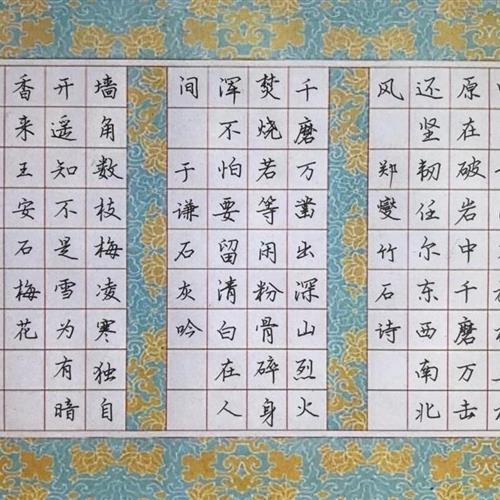 原在破岩中千磨万击
还坚韧任尔东西南北
风 郑燮竹石诗
千磨万凿出深山烈火
焚烧若等闲粉骨碎身
浑不怕要留清白在人
间 于谦石灰吟
墙角数枝梅凌寒独自
开遥知不是雪为有暗
香来王安石梅花